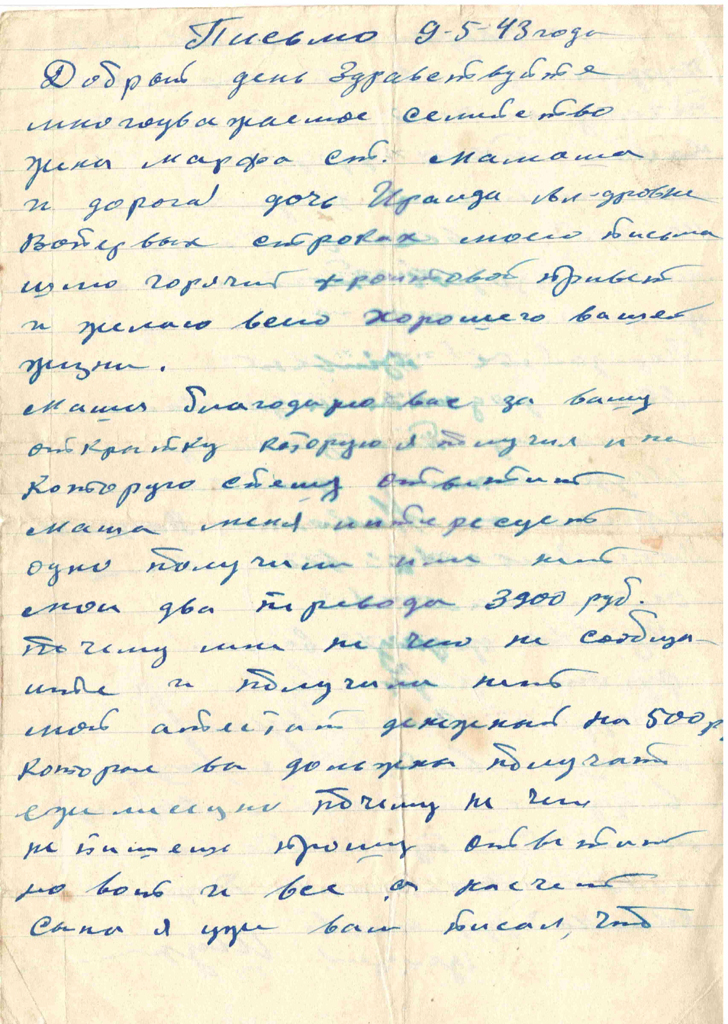 Письмо 9-5-43 года
Добрый день Здравствуйте
многоуважаемое семейство
жена марфа ст. мамаша
и дорогая дочь Ираида Ал-дровна
Вопервых строках моего письма
шлю горячий фронтовой привет
и желаю всего хорошего вашей
жизни.
Маша благодарю вас за вашу
открытку которую я получил и на
которую спешу ответит
маша меня интересует
одно получили или нет
мои два перевода 3900 руб.
почему мне не чего не сообща-
ите и получили нет
мой атестат денежный на 500 р
которые вы должны получат
ежемесячно почему не чего
не пишеш прошу ответит
но вот и все а насчет
сына я уже вам писал, что